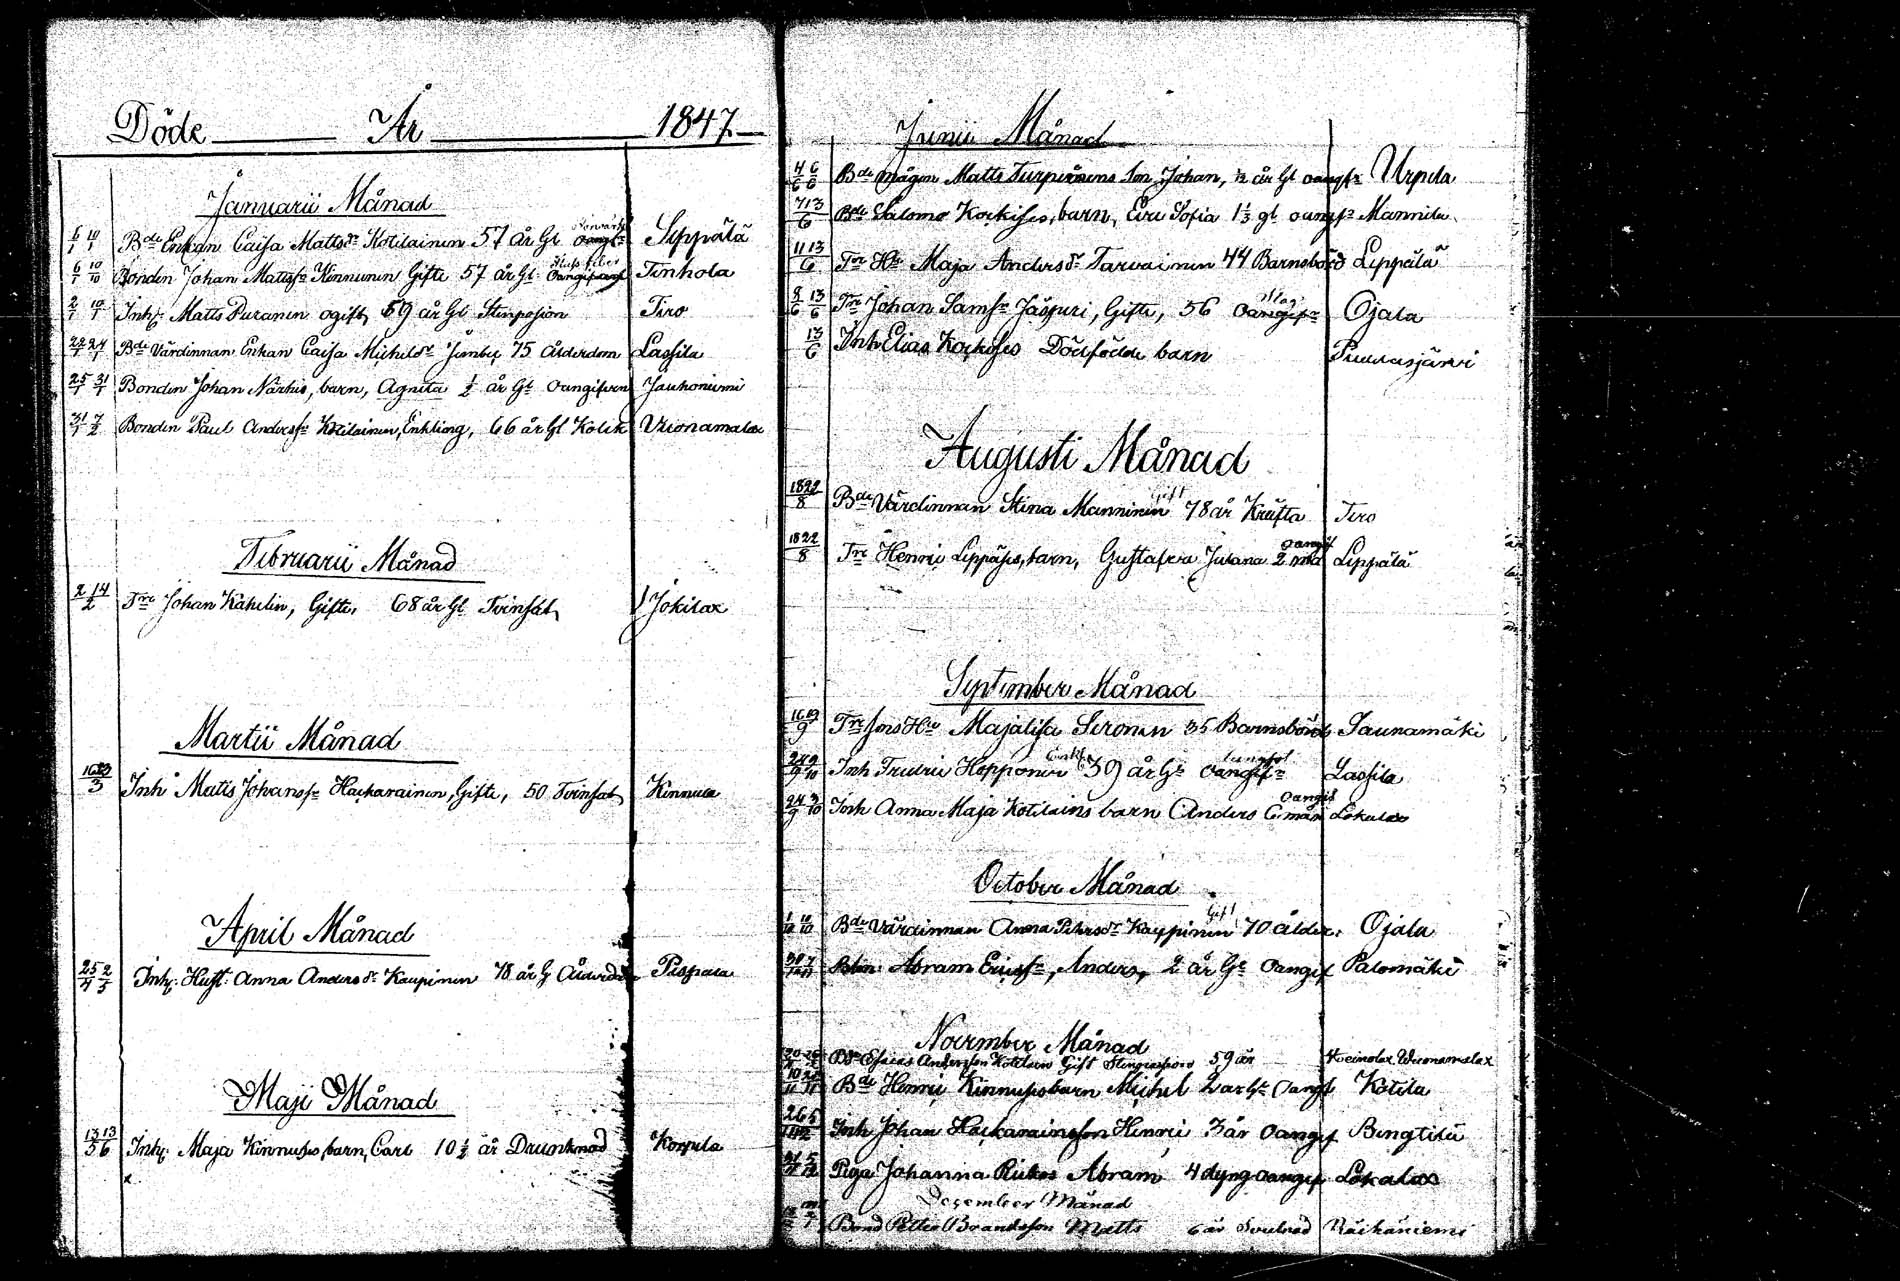 Döde År 1847
Januarii Månad
6/1 10/1 Bde Enkan Caisa Mattsdr Kotilainen 57 år Gl oangifr Sippälä
6/1 10/10 Bonden Johan Mattsson Kinnunen Gifte 57 år Gl. Tinhola
2/1 10/1 Inh. Matts Puranen ogift, 59 år Gl Stenpasion Tiro
22/1 24/1 Bde Värdinnan Enkan Caisa Michelsdr Jimbe 75 Ålderdom Lassila
25/1 31/1 Bonden Johan Närhis, barn, Agneta 1/2 år Gl Oangifven Jauhoniemi
31/1 7/2 Bonden Paul Andersson Kotilainen, Enkling, 66 år Gl Kolik Vuonamalax
Februarii Månad
2 14/2 Tre Johan Kähelin, Gifte, 68 år Gl Tvinsot Jokilax
Martii Månad
16 23/3 Inh Matts Johansson Hackarainen, Gifte, 50 Tvinsot Kinnula
April Månad
25/4 2/5 Inh: Hust: Anna Andersdr Kaupinen 78 år G Pispala
Maji Månad
13/5 13/6 Inh. Maja Kinnuses, barn, Carl 10 1/2 år Drunknad Korpela
Junii Månad
4/6 6/6 Bde mågen Matts Turpeinens son Johan, 1/2 år Gl oangifr Urpila
7 13/6 Bde Salomo Korkises, barn, Eva Sofia 1 1/3 gl. oangifr Mannila
11 13/6 Tre Hu Maja Andersdr Tarvainen 44 Barnsbörd Lippälä
8/6 13/6 Tre Johan Samsson Jäspuri, Gifte, 56 Oangifr Ojala
13/6 Inh Elias Korkises Dödfödde barn Puurasjärvi
Augusti Månad
18 22/8 Bde Värdinnan Stina Manninen Gift 78 år Kräfta Tiro
18 22/8 Tre Henric Lippäses, barn, Gustafva Juliana 2 md oangif Lippälä
September Månad
16 19/9 Tre sons Hu Majalisa Sironen 35 Barnsbörd Saunamäki
Inh Fredric Hopponen 39 år Gl Oangifr Lassila
24/9 3/10 Inh Anna Maja Kotilains barn Anders 6 mån oangif Lokalax
October Månad
1/10 10/10 Bde Värdinnan Anna Petersdr Kauppinen Gift 70 ålder. Ojala
Abram Ericsson, Anders, 2 år Gl Oangif Palomäki
November Månad
Bde Esaias Andersson Kotilain Gift Stengiespasion 59 år Wuonamalax
Bde Henric Kinnuses barn Michel 2 år Gl Oangif Kotila
Inh Johan Hackarainsson Henric 3 år Oangif Bengtilä
Piga Johanna Abram 4 dygn oangif Lokalax
December Månad
Bond Petter Brandsson Matts 6 år Räihäniemi